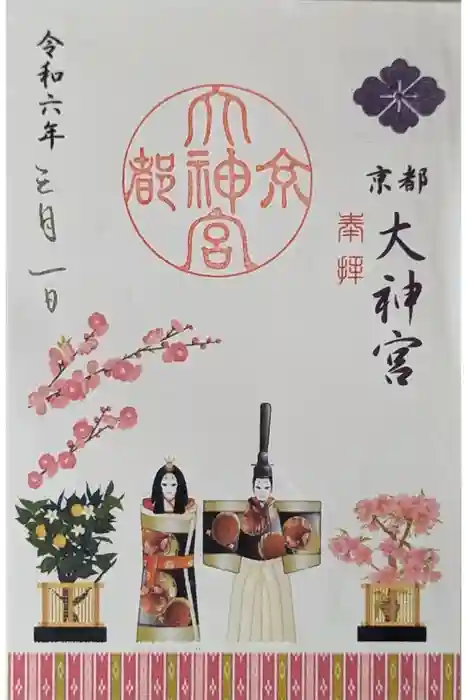 京都
大神宮
奉拝
大神宮
京都
令和六年
三月一日